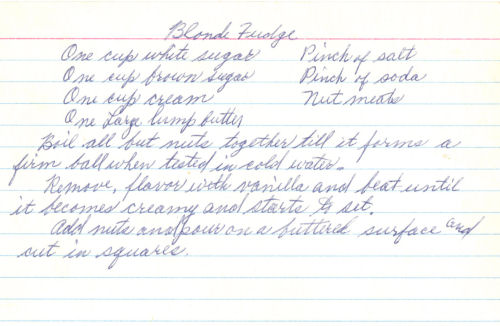 Blonde Fudge
One cup white sugar Pinch of salt
One cup brown sugar Pinch of soda
One cup cream Nut meats
One Large lump butter
Boil all but nuts together till it forms a
firm ball when tested in cold water.
Remove, flavor with vanilla and beat until
it becomes creamy and starts to set.
Add nuts and pour on a buttered surface and
cut in squares.